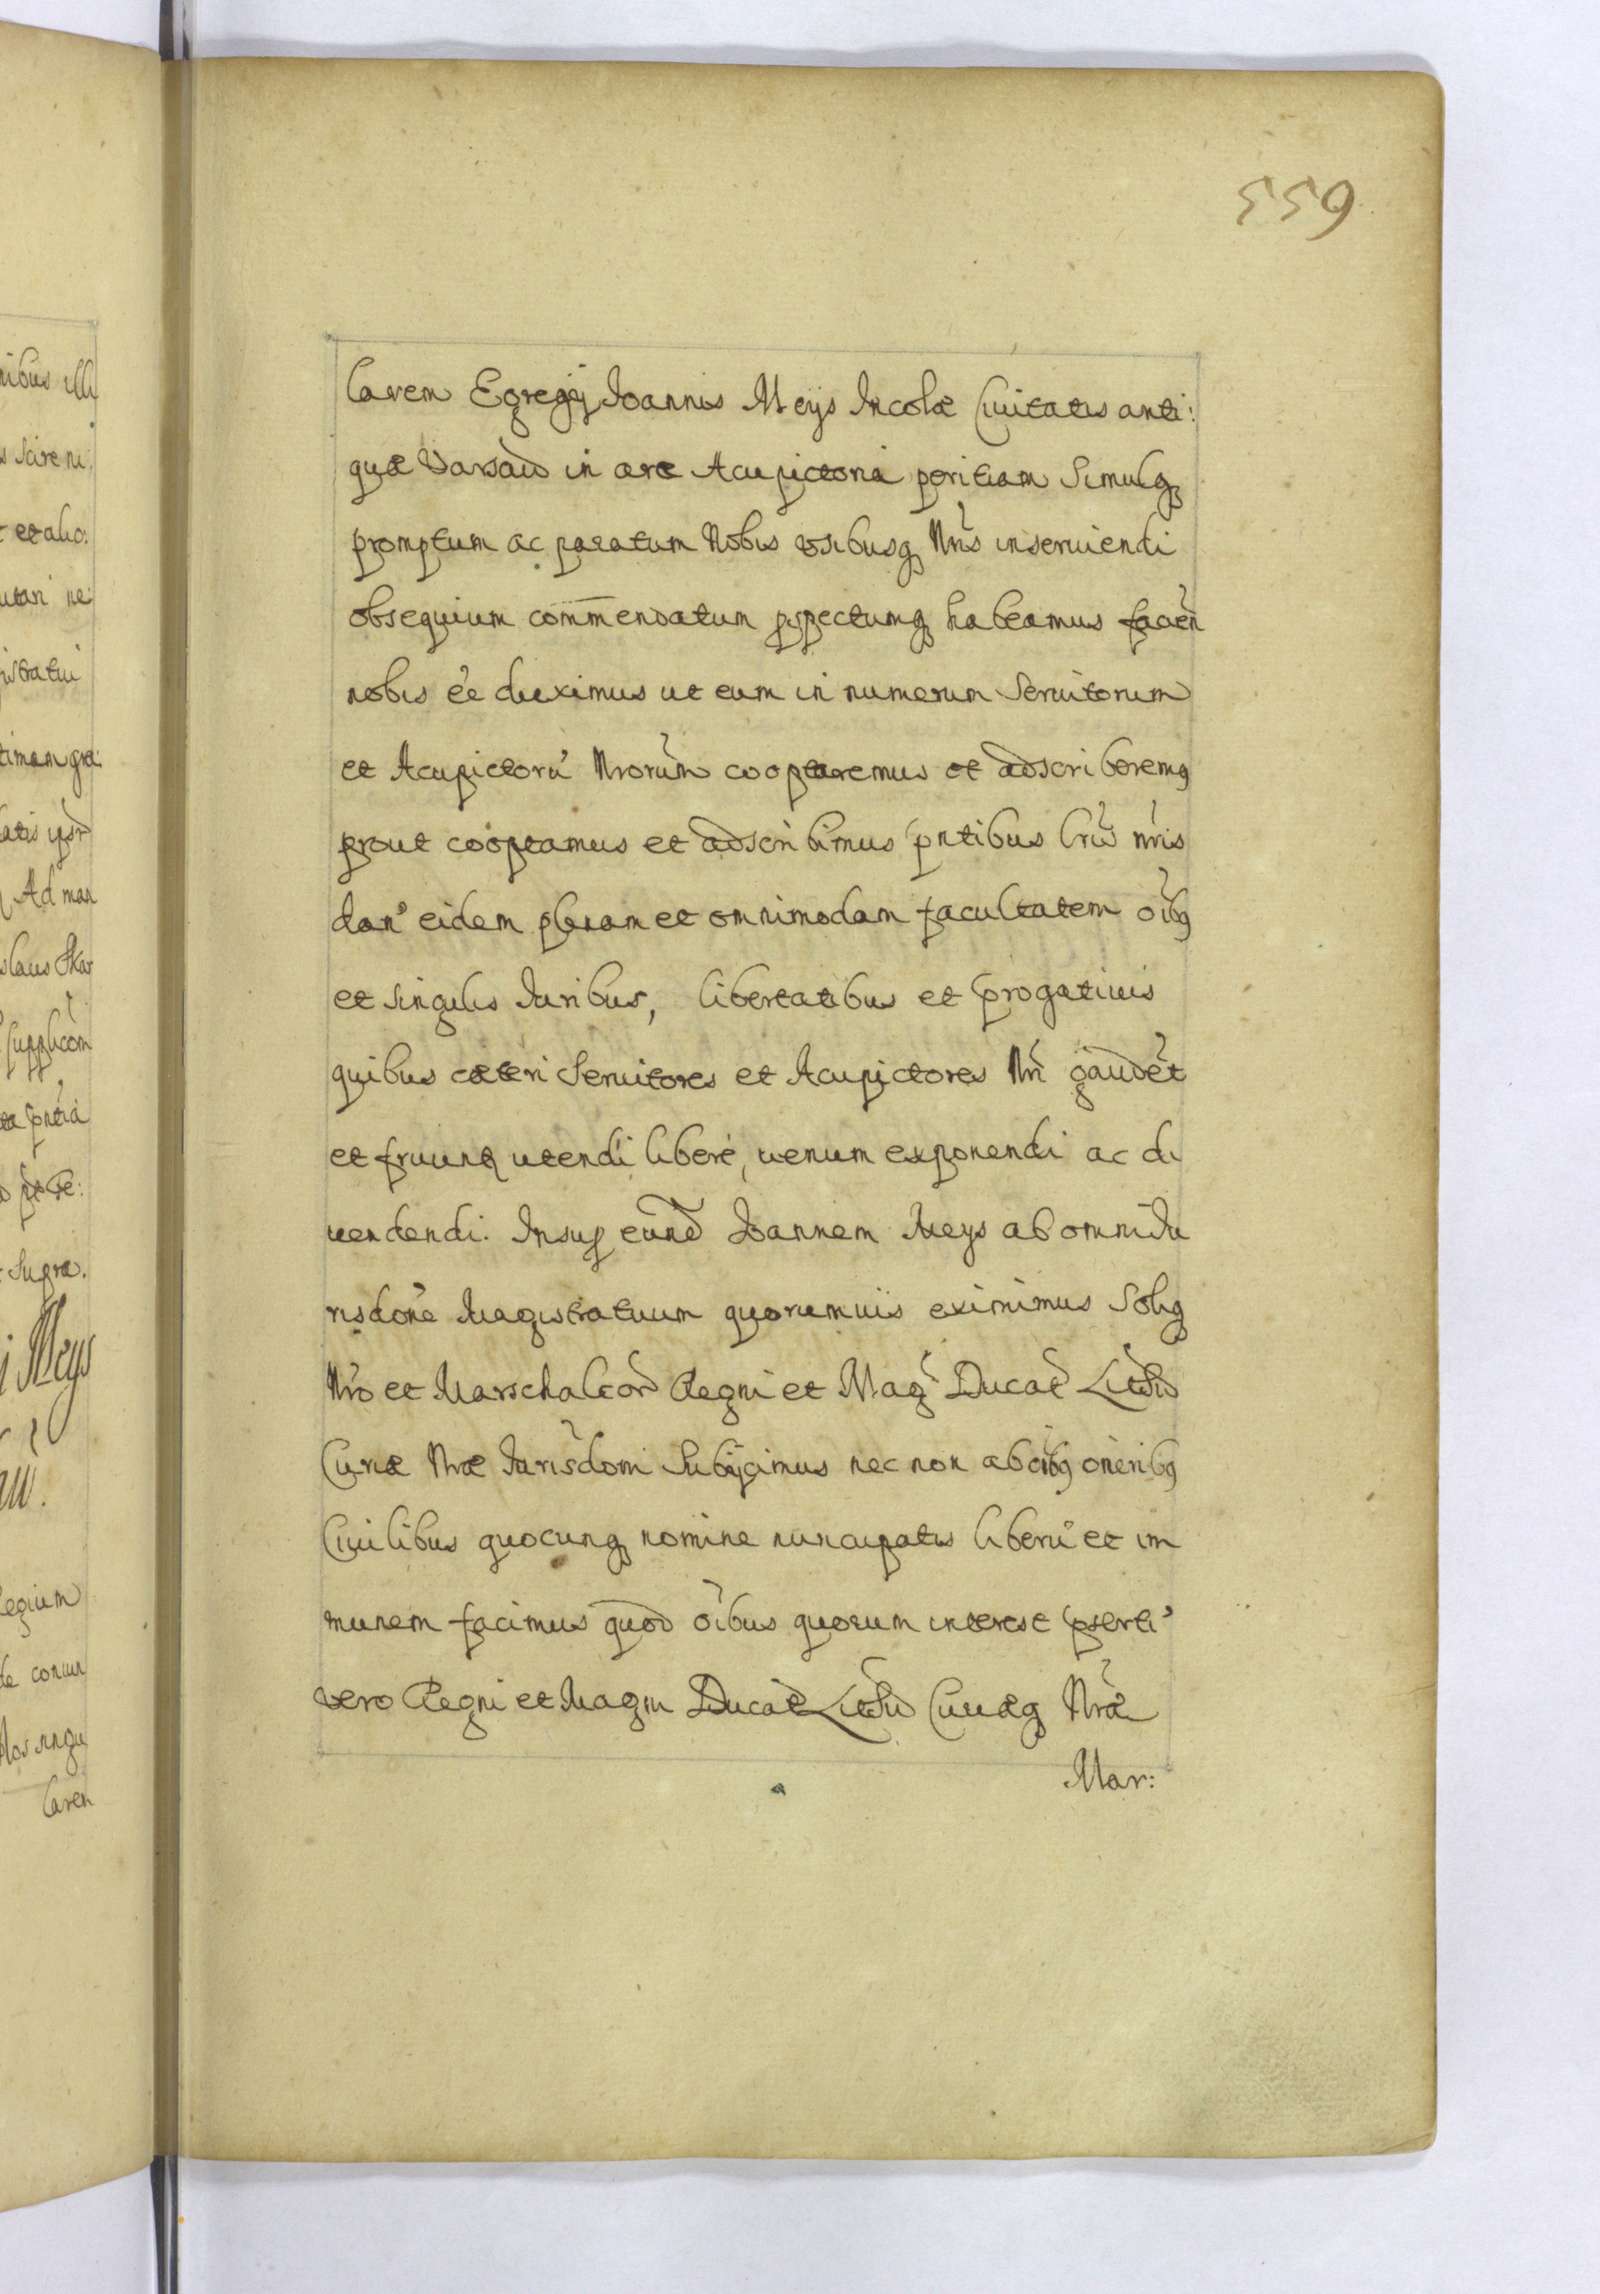 559
larem Egregij Joannis Meys Incolæ Civitatis anti:
quæ Varsav in arte Acupictoria peritiam Simulq
promptum ac paratum Nobis vsibusq Nris inserviendi
obsequium commendatum pspectumq habeamus facien
nobis ee duximus ut eum in numerum Servitorum
et Acupictoru Nrorum cooptaremus et adscriberemq
prout cooptamus et adscribimus pntibus lris nris
dan eidem plenam et omnimodam facultatem oibq
et singulis Juribus, libertatibus et progativis
quibus cæteri Servitores et Acupictores Nri gaudet
et fruunt utendi libere, venum exponendi ac di
vendendi. Insup eund Joannem Meys ab omni Ju
risdone Magistratuum quorumvis eximimus Soliq
Nro et Marschalcor Regni et Mag Ducat Lith
Curiæ Nræ Jurisdoni Subijcimus nec non ab oibq oneribq
Civilibus quocunq nomine nuncupatis liberu et im
munem facimus quod oibus quorum interest pserti
vero Regni et Magni Ducat Lith Curiæq Nræ
Mar:
nibus illi
s scire ni
et alio:
utari ne
istratui
timam gra:
latis ipsr
Ad man
slaus Skar
supplicom
ta pntia
supra.
Meys
egium
de coniun
Nos singu
laren